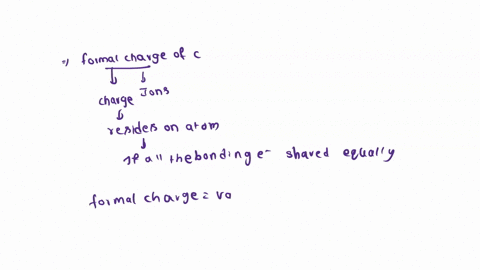 =, formal charge of c
charge Ions
resides on atom
If all the bonding e- shared equally
formal charge = va